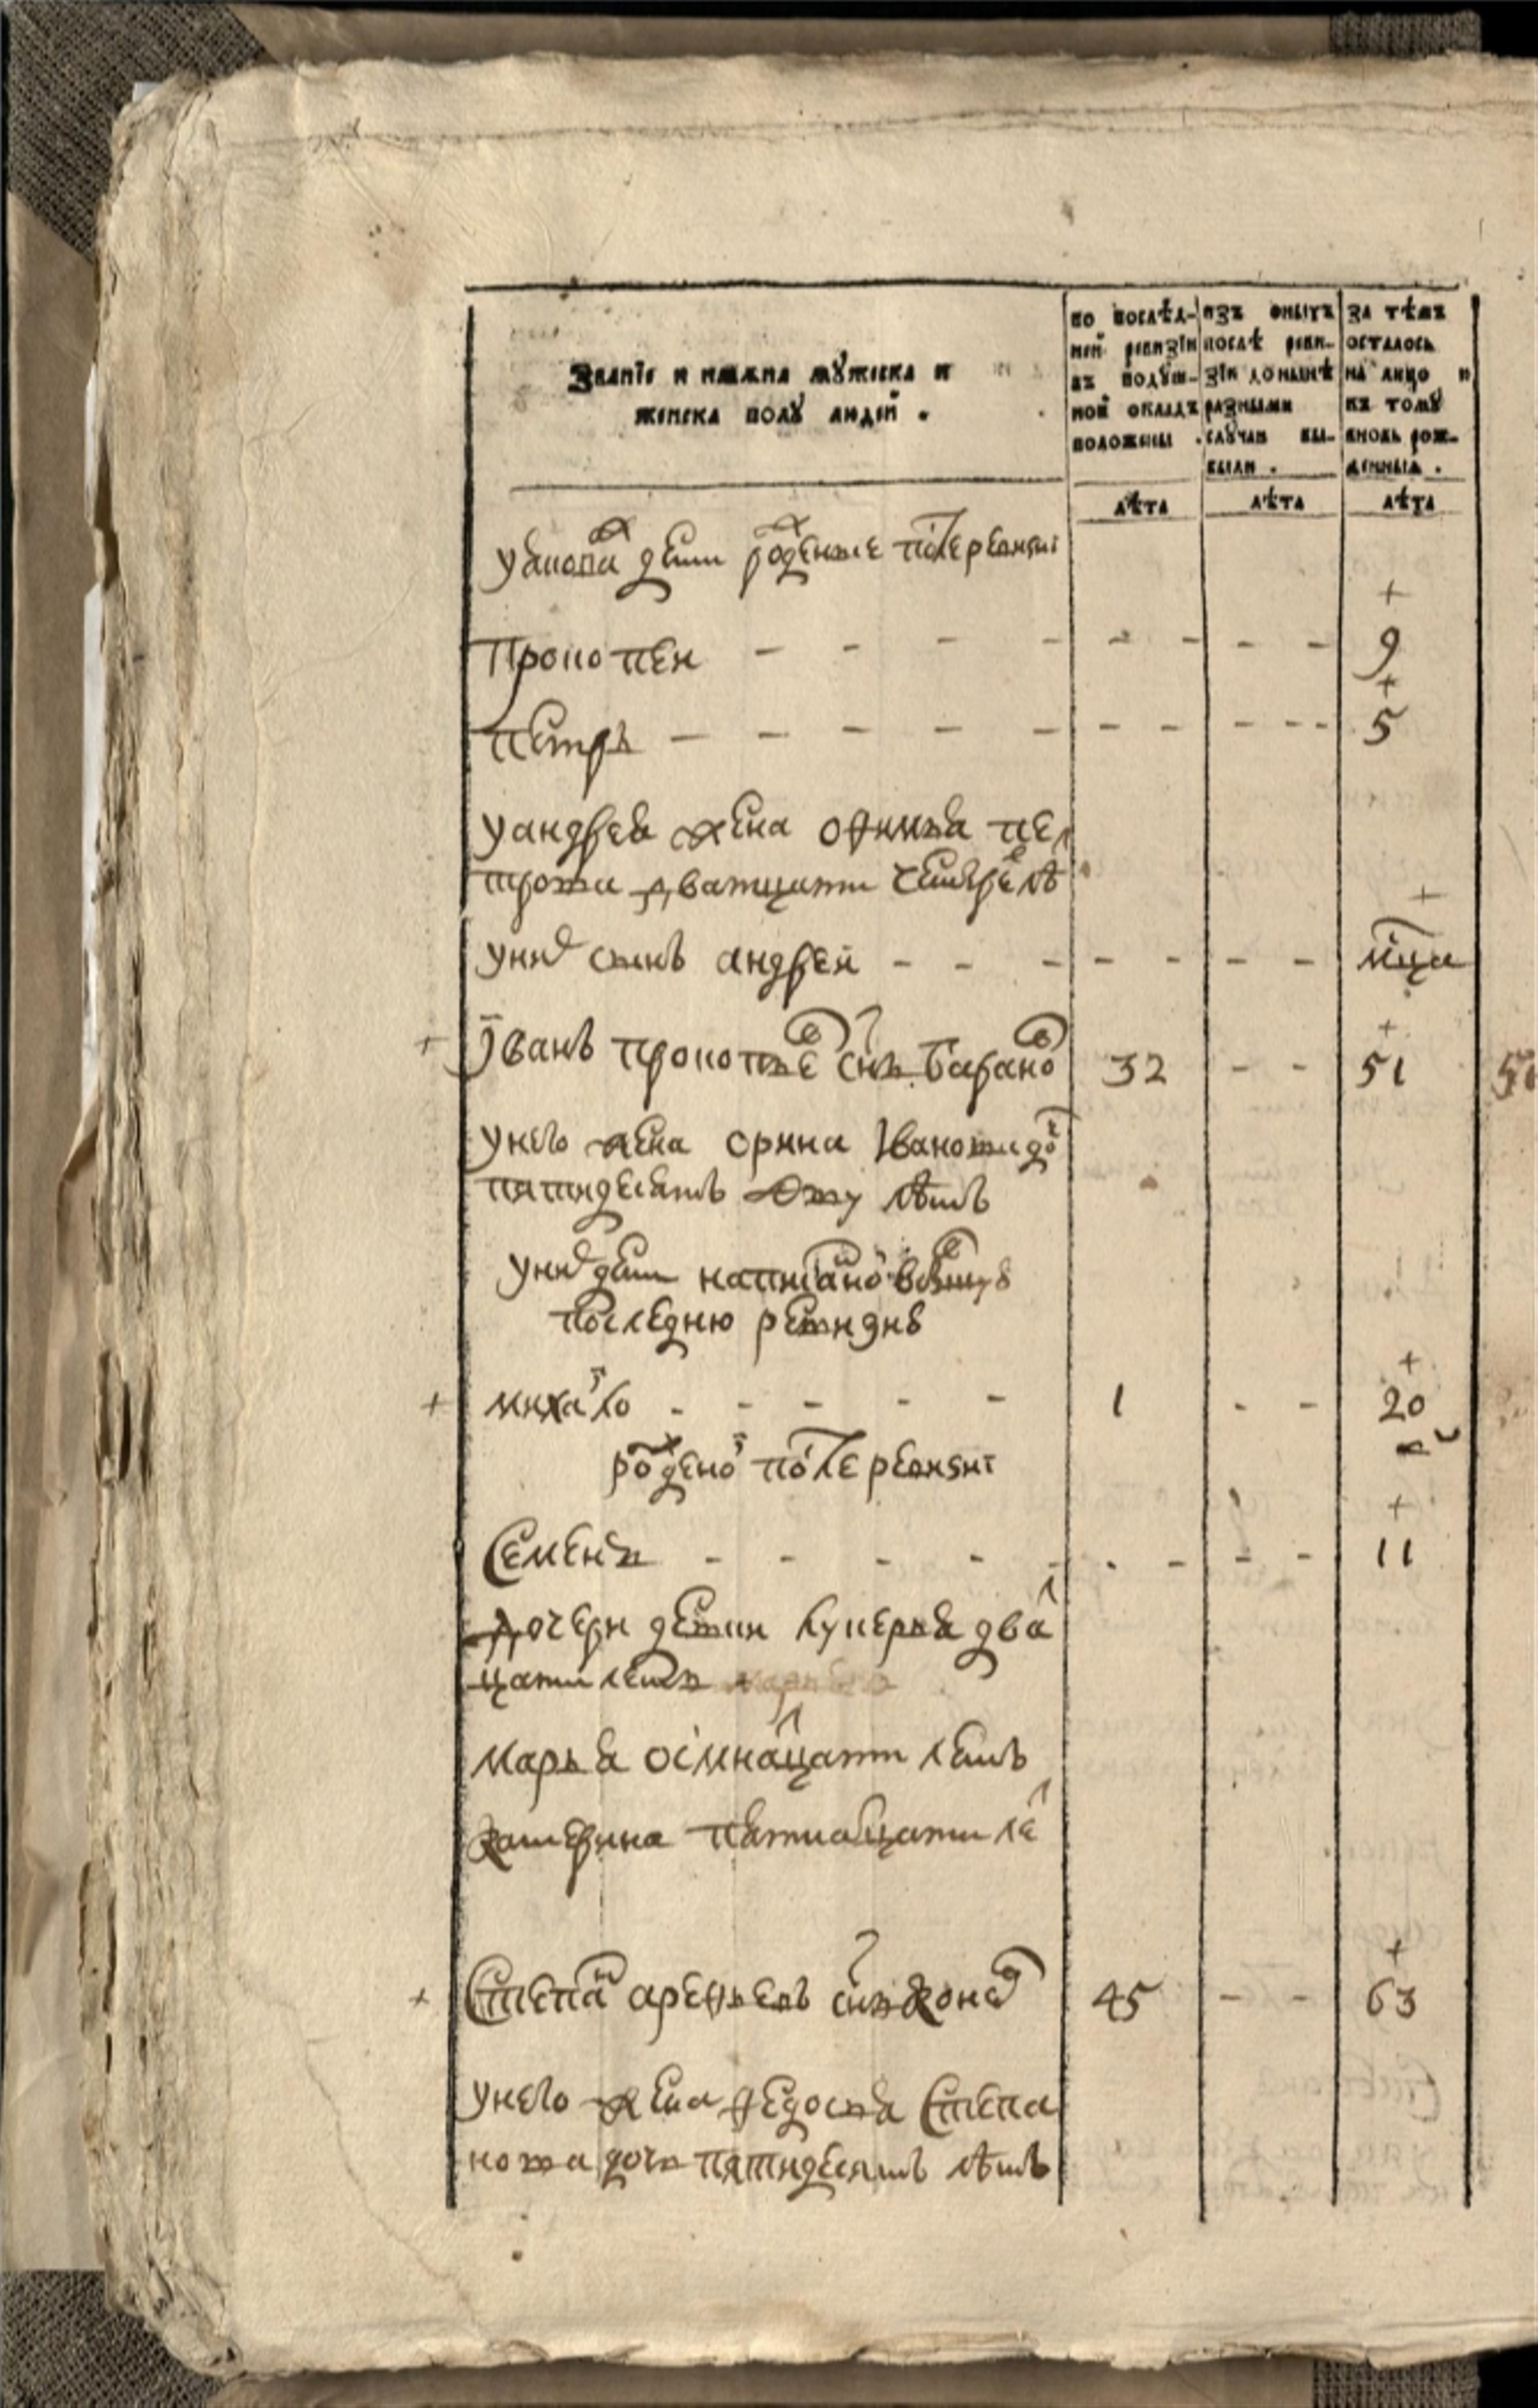 Званіе и имѧна мꙋжеска и
женска полꙋ людей .
по послѣд-
ней ревизіи
въ подꙋш-
ной окладъ
положены .
изъ оныхъ
послѣ реви-
зіи донынѣ
разными
слꙋчаи вы-
были .
за тѣмъ
осталось
на лицо и
къ томꙋ
вновь рож-
денныѧ .
лѣта лѣта лѣта
дети рожденые после ревизиі
Прокопеи - - - - - - - - 9
петръ - - - - - - - - 5
уандрея жена офимья пе
трова дватцати четыре лѣ
уних сынъ андреи - - - - - - - мца
Iванъ прокопьев снъ барано 32 - - 51
унего жена орина Iванова до
пятидесятъ одну лѣтъ
уних дети написаной в
последнюю ревизию
михайло - - - - - 1 - - 20
рожденой после ревизиі
Семенъ - - - - - - - - - 11
дочери детии лукерья два
цати летъ
марья осмнацати летъ
катерина пятнацати ле
Степан арефьевъ снъ 45 - - 63
унего жена федосья Степа
нова дочь пятидесятъ лѣтъ